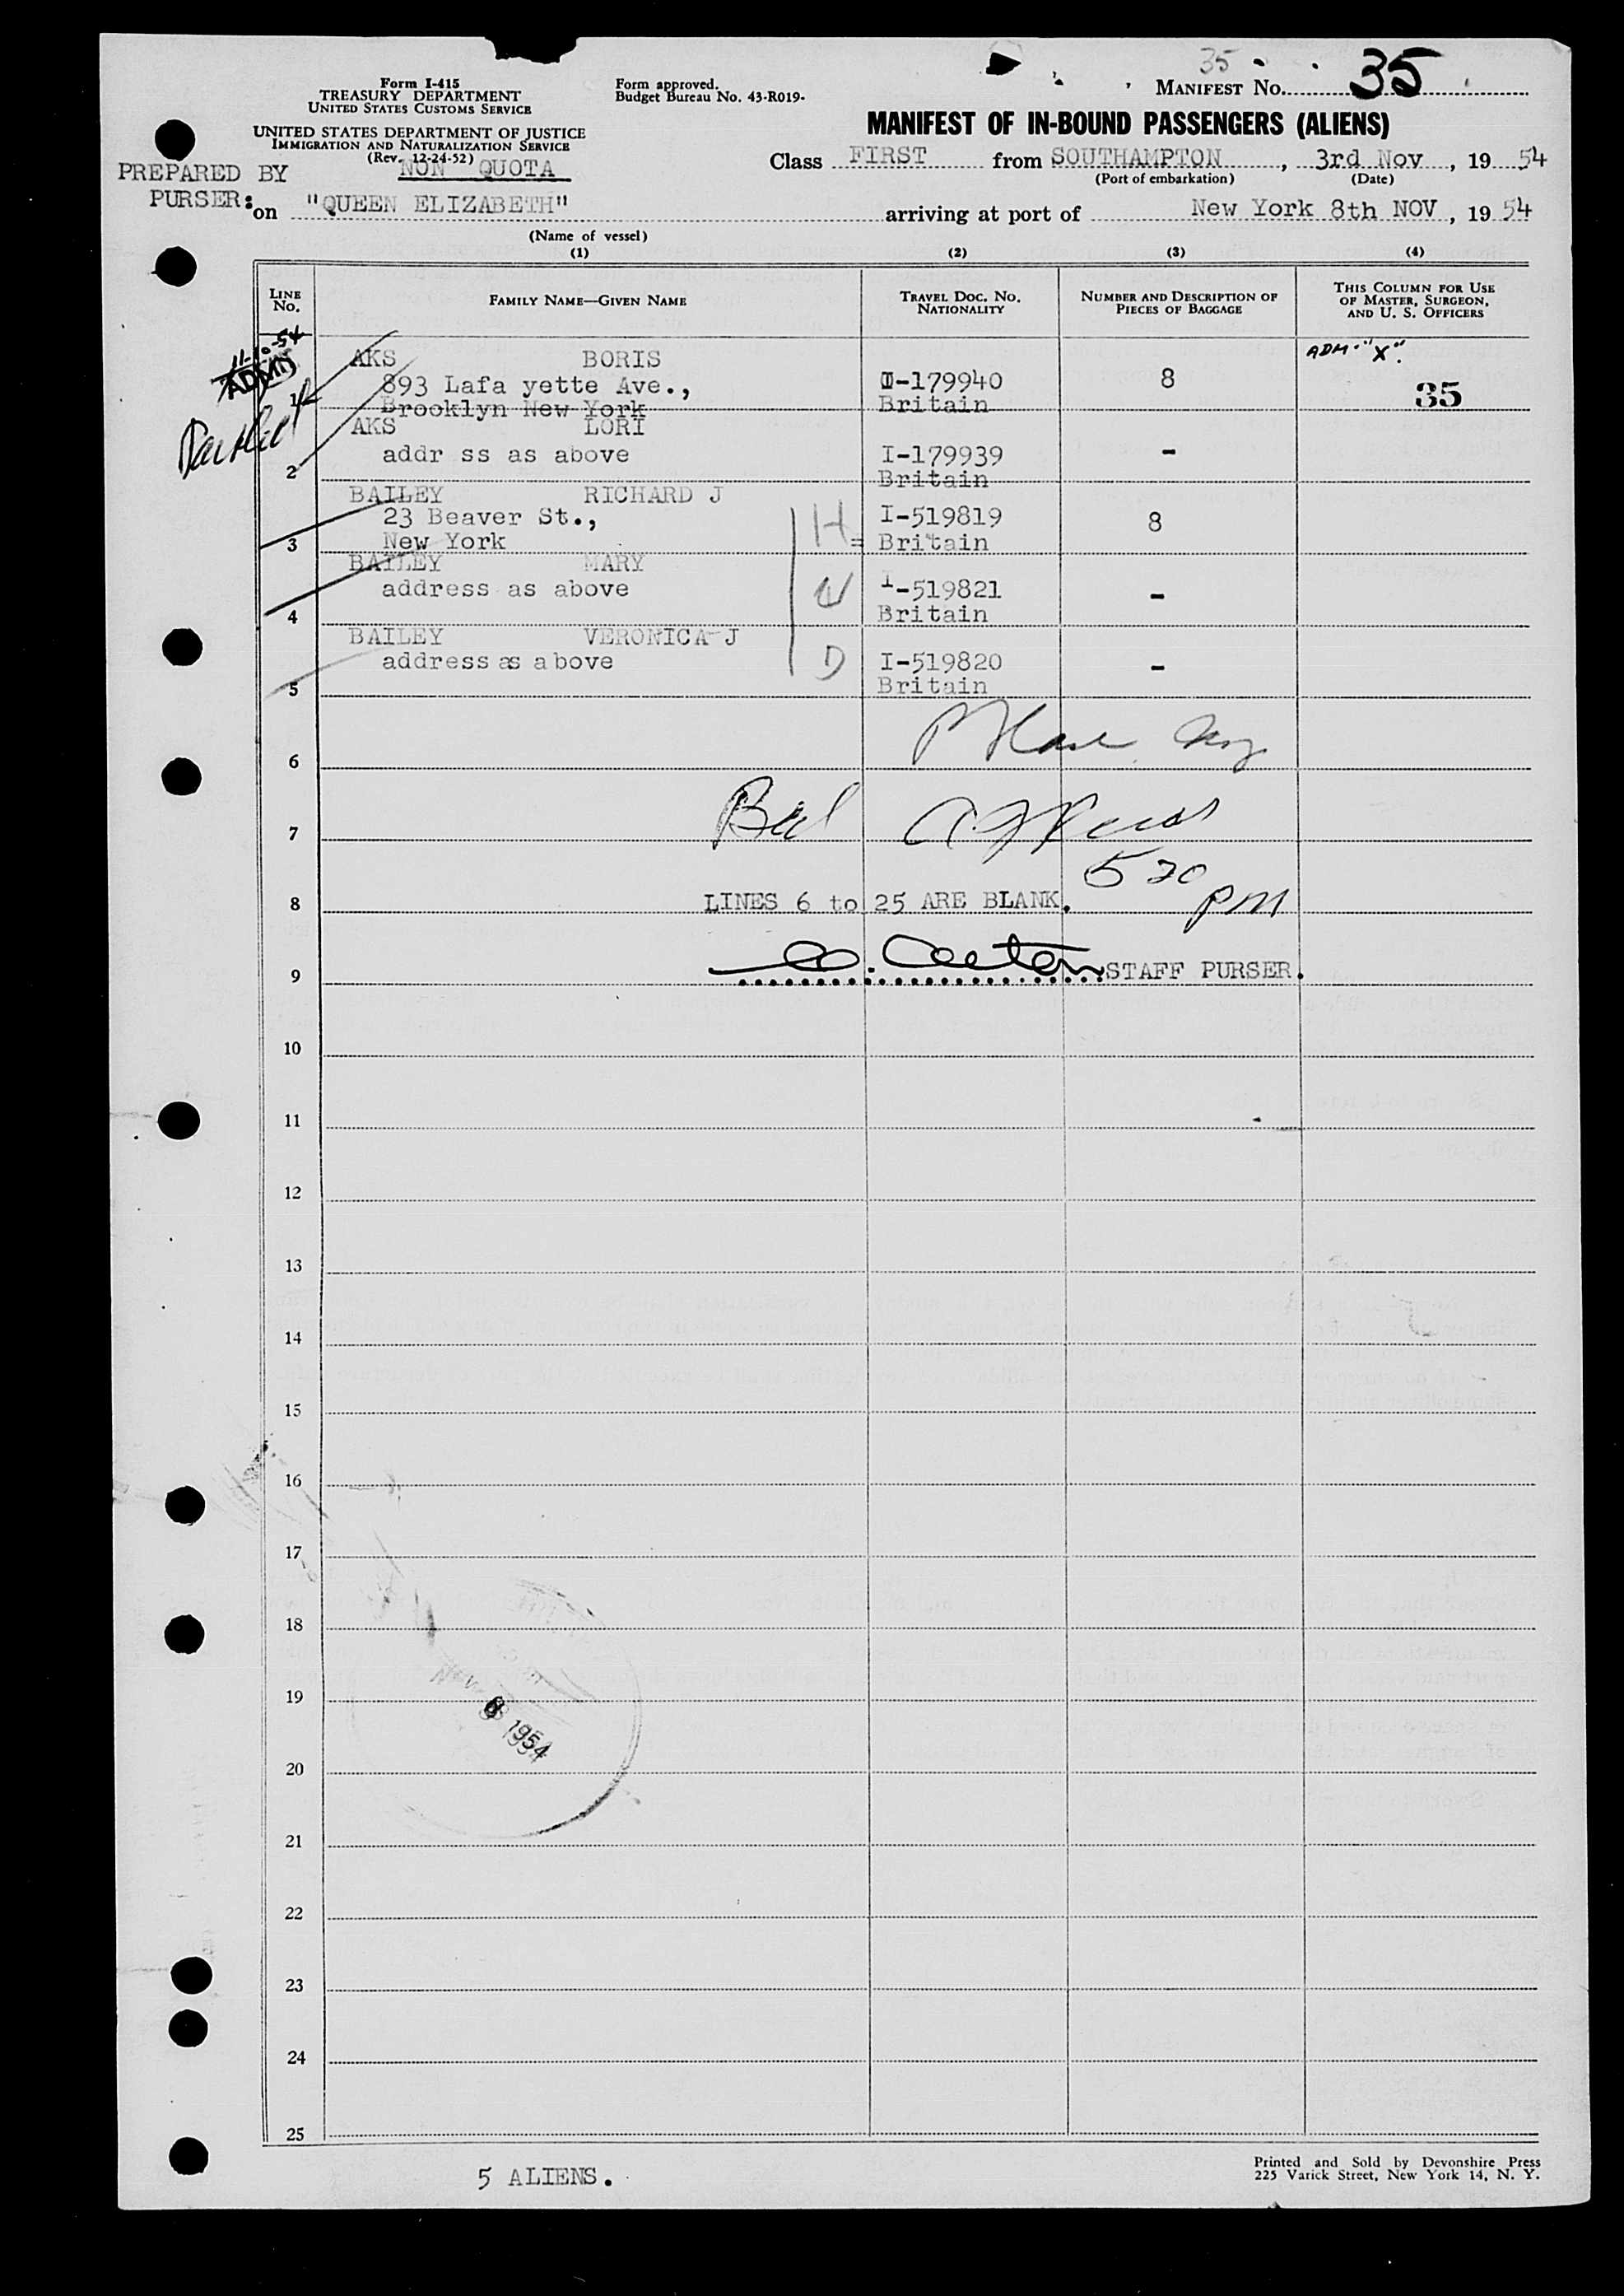 Form I-415
TREASURY DEPARTMENT
UNITED STATES CUSTOMS SERVICE
UNITED STATES DEPARTMENT OF JUSTICE
IMMIGRATION AND NATURALIZATION SERVICE
(Rev. 12-24-52)
Form approved.
Budget Bureau No. 43-R019-
35
MANIFEST No. 35
MANIFEST OF IN-BOUND PASSENGERS (ALIENS)
NON QUOTA
Class FIRST from SOUTHAMPTON, 3rd Nov, 19 54
(Port of embarkation) (Date)
PREPARED BY
PURSER:
on "QUEEN ELIZABETH" arriving at port of New York 8th NOV, 19 54
(Name of vessel)
(1) (2) (3) (4)
LINE No. FAMILY NAME—GIVEN NAME TRAVEL DOC. No. NATIONALITY NUMBER AND DESCRIPTION OF PIECES OF BAGGAGE THIS COLUMN FOR USE OF MASTER, SURGEON, AND U. S. OFFICERS
11-10-54
ADM
AKS BORIS ADM. "X".
893 Lafa yette Ave., I-179940 8 35
1 Brooklyn New York Britain
AKS LORI
addr ss as above I-179939 -
2 Britain
BAILEY RICHARD J
23 Beaver St., H I-519819 8
3 New York Britain
BAILEY MARY
address as above W I-519821 -
4 Britain
BAILEY VERONICA J
address as above D I-519820 -
5 Britain
6
7
5 20 pm
8 LINES 6 to 25 ARE BLANK.
9 STAFF PURSER.
10
11
12
13
14
15
16
17
18
19
8 1954
20
21
22
23
24
25
5 ALIENS.
Printed and Sold by Devonshire Press
225 Varick Street, New York 14, N. Y.